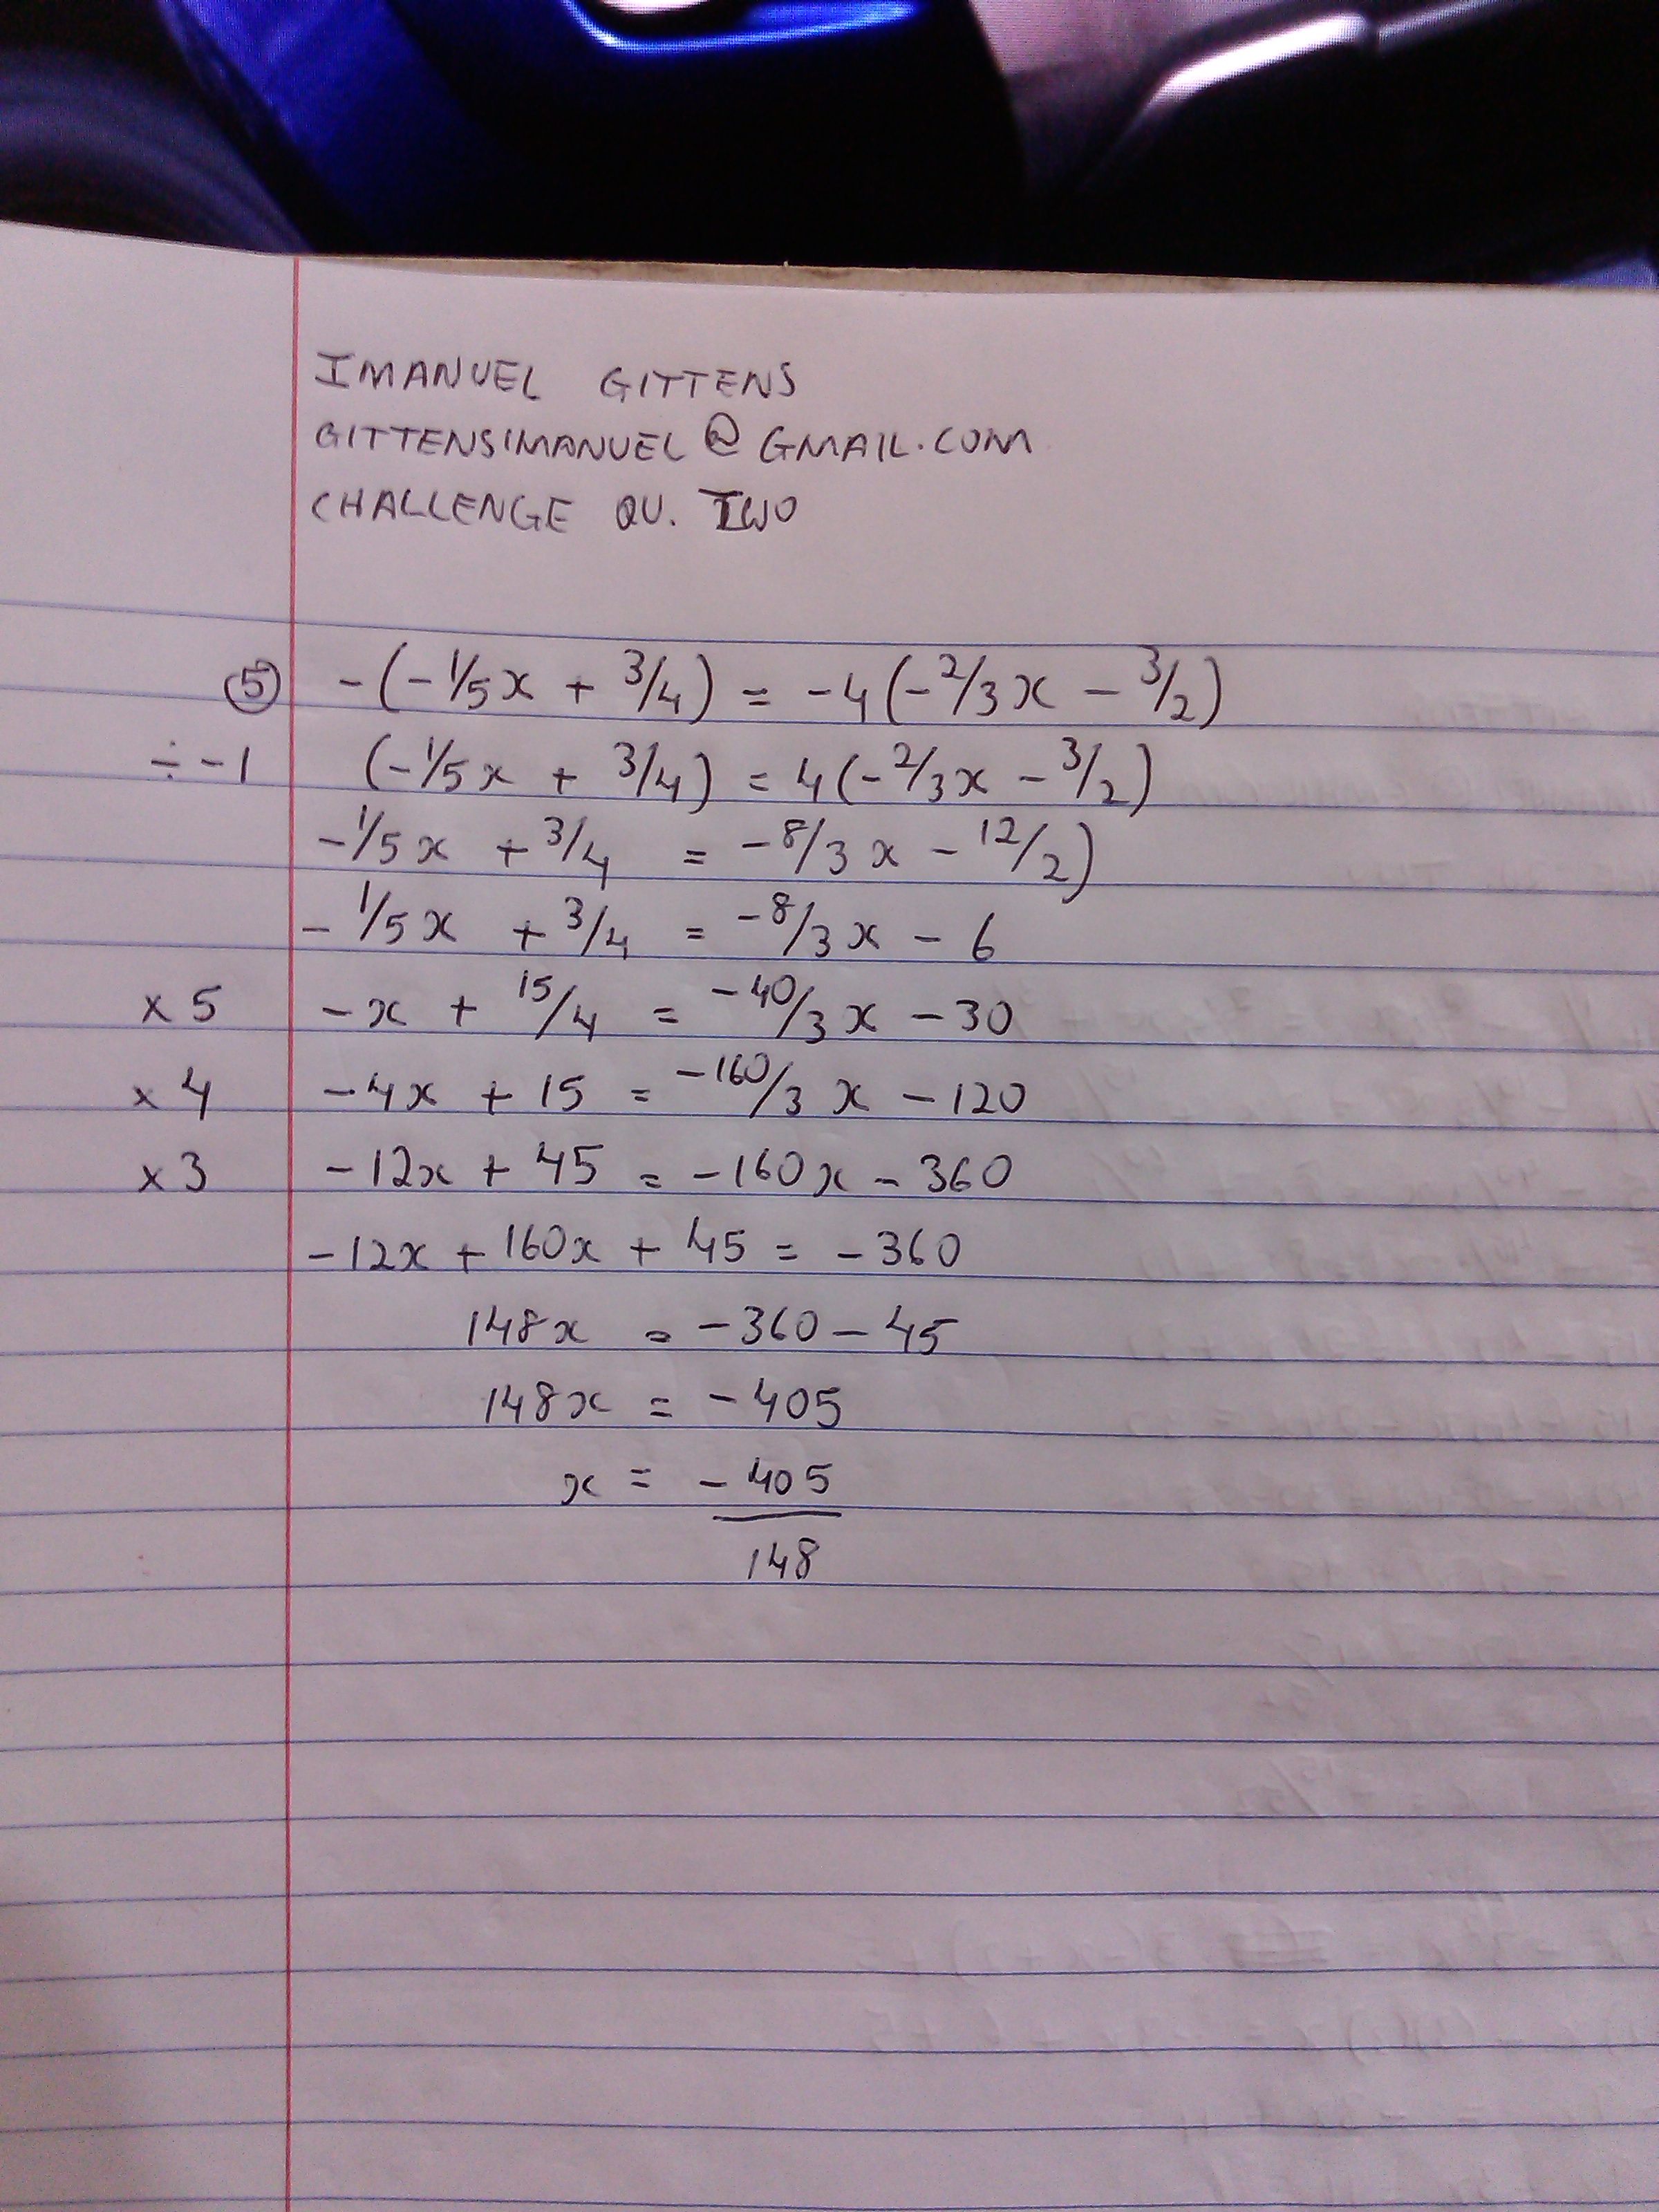 IMANUEL GITTENS
GITTENSIMANUEL@GMAIL.COM
CHALLENGE QU. TWO
⑤ -(-1/5x + 3/4) = -4(-2/3x - 3/2)
÷-1 (-1/5x + 3/4) = 4(-2/3x - 3/2)
-1/5x + 3/4 = -8/3x - 12/2)
-1/5x + 3/4 = -8/3x - 6
x5 -x + 15/4 = -40/3x - 30
x4 -4x + 15 = -160/3x - 120
x3 -12x + 45 = -160x - 360
-12x + 160x + 45 = -360
148x = -360 - 45
148x = -405
x = -405
148